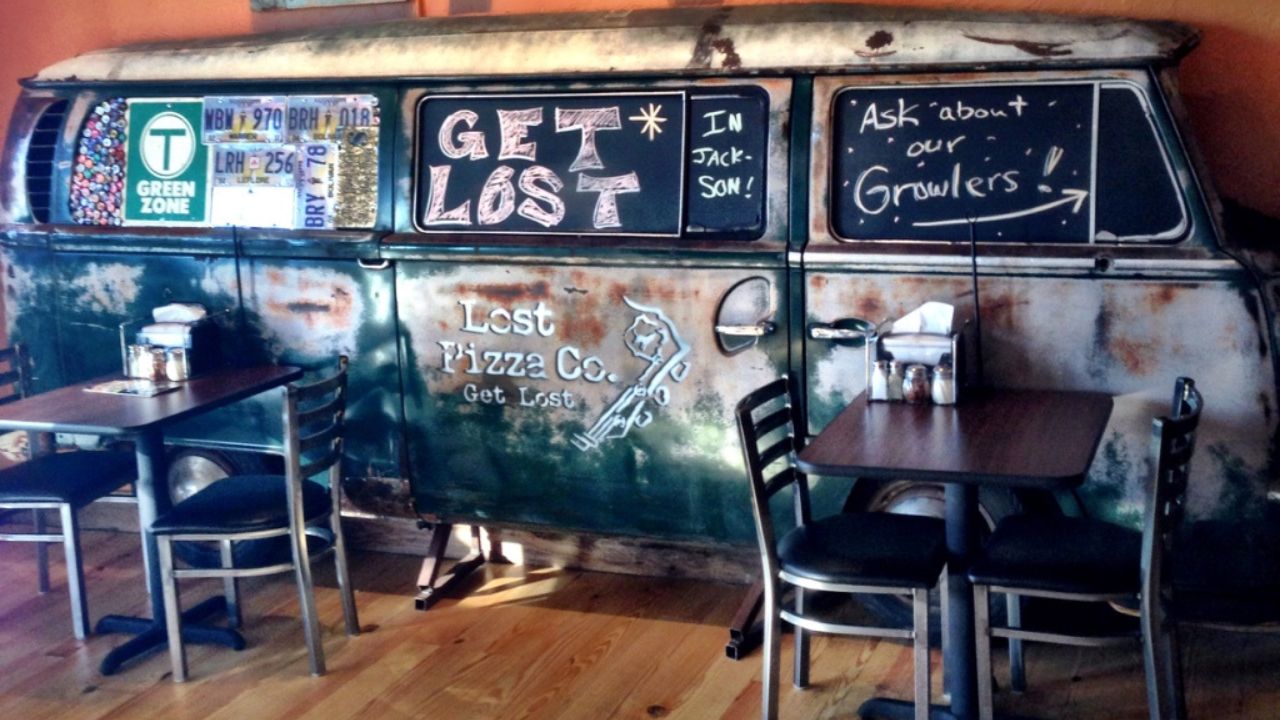 T
GREEN
ZONE
WBW 970
BRH 018
LRH 256
LEFLORE
BRY 78
GET
LOST
IN
JACK-
SON!
Ask about
our
Growlers!
Lost
Pizza Co.
Get Lost